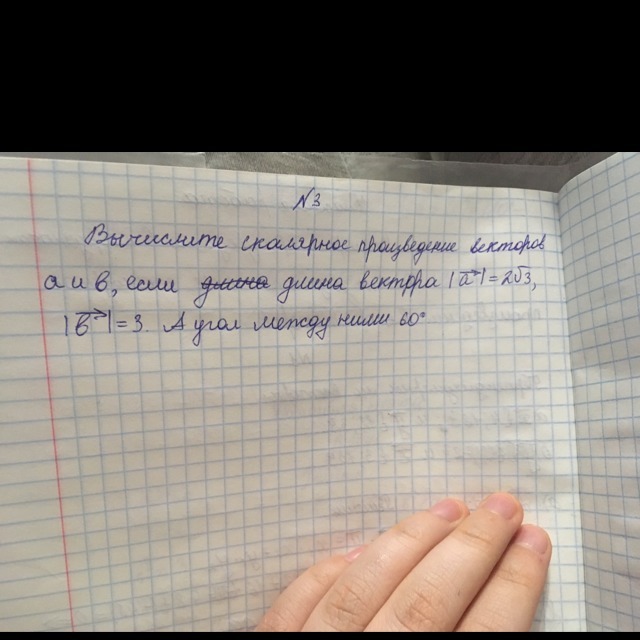 №3
Вычислите скалярное произведение векторов
a и b, если длина длина вектора |a⃗|=2√3,
|b⃗|=3. А угол между ними 60°